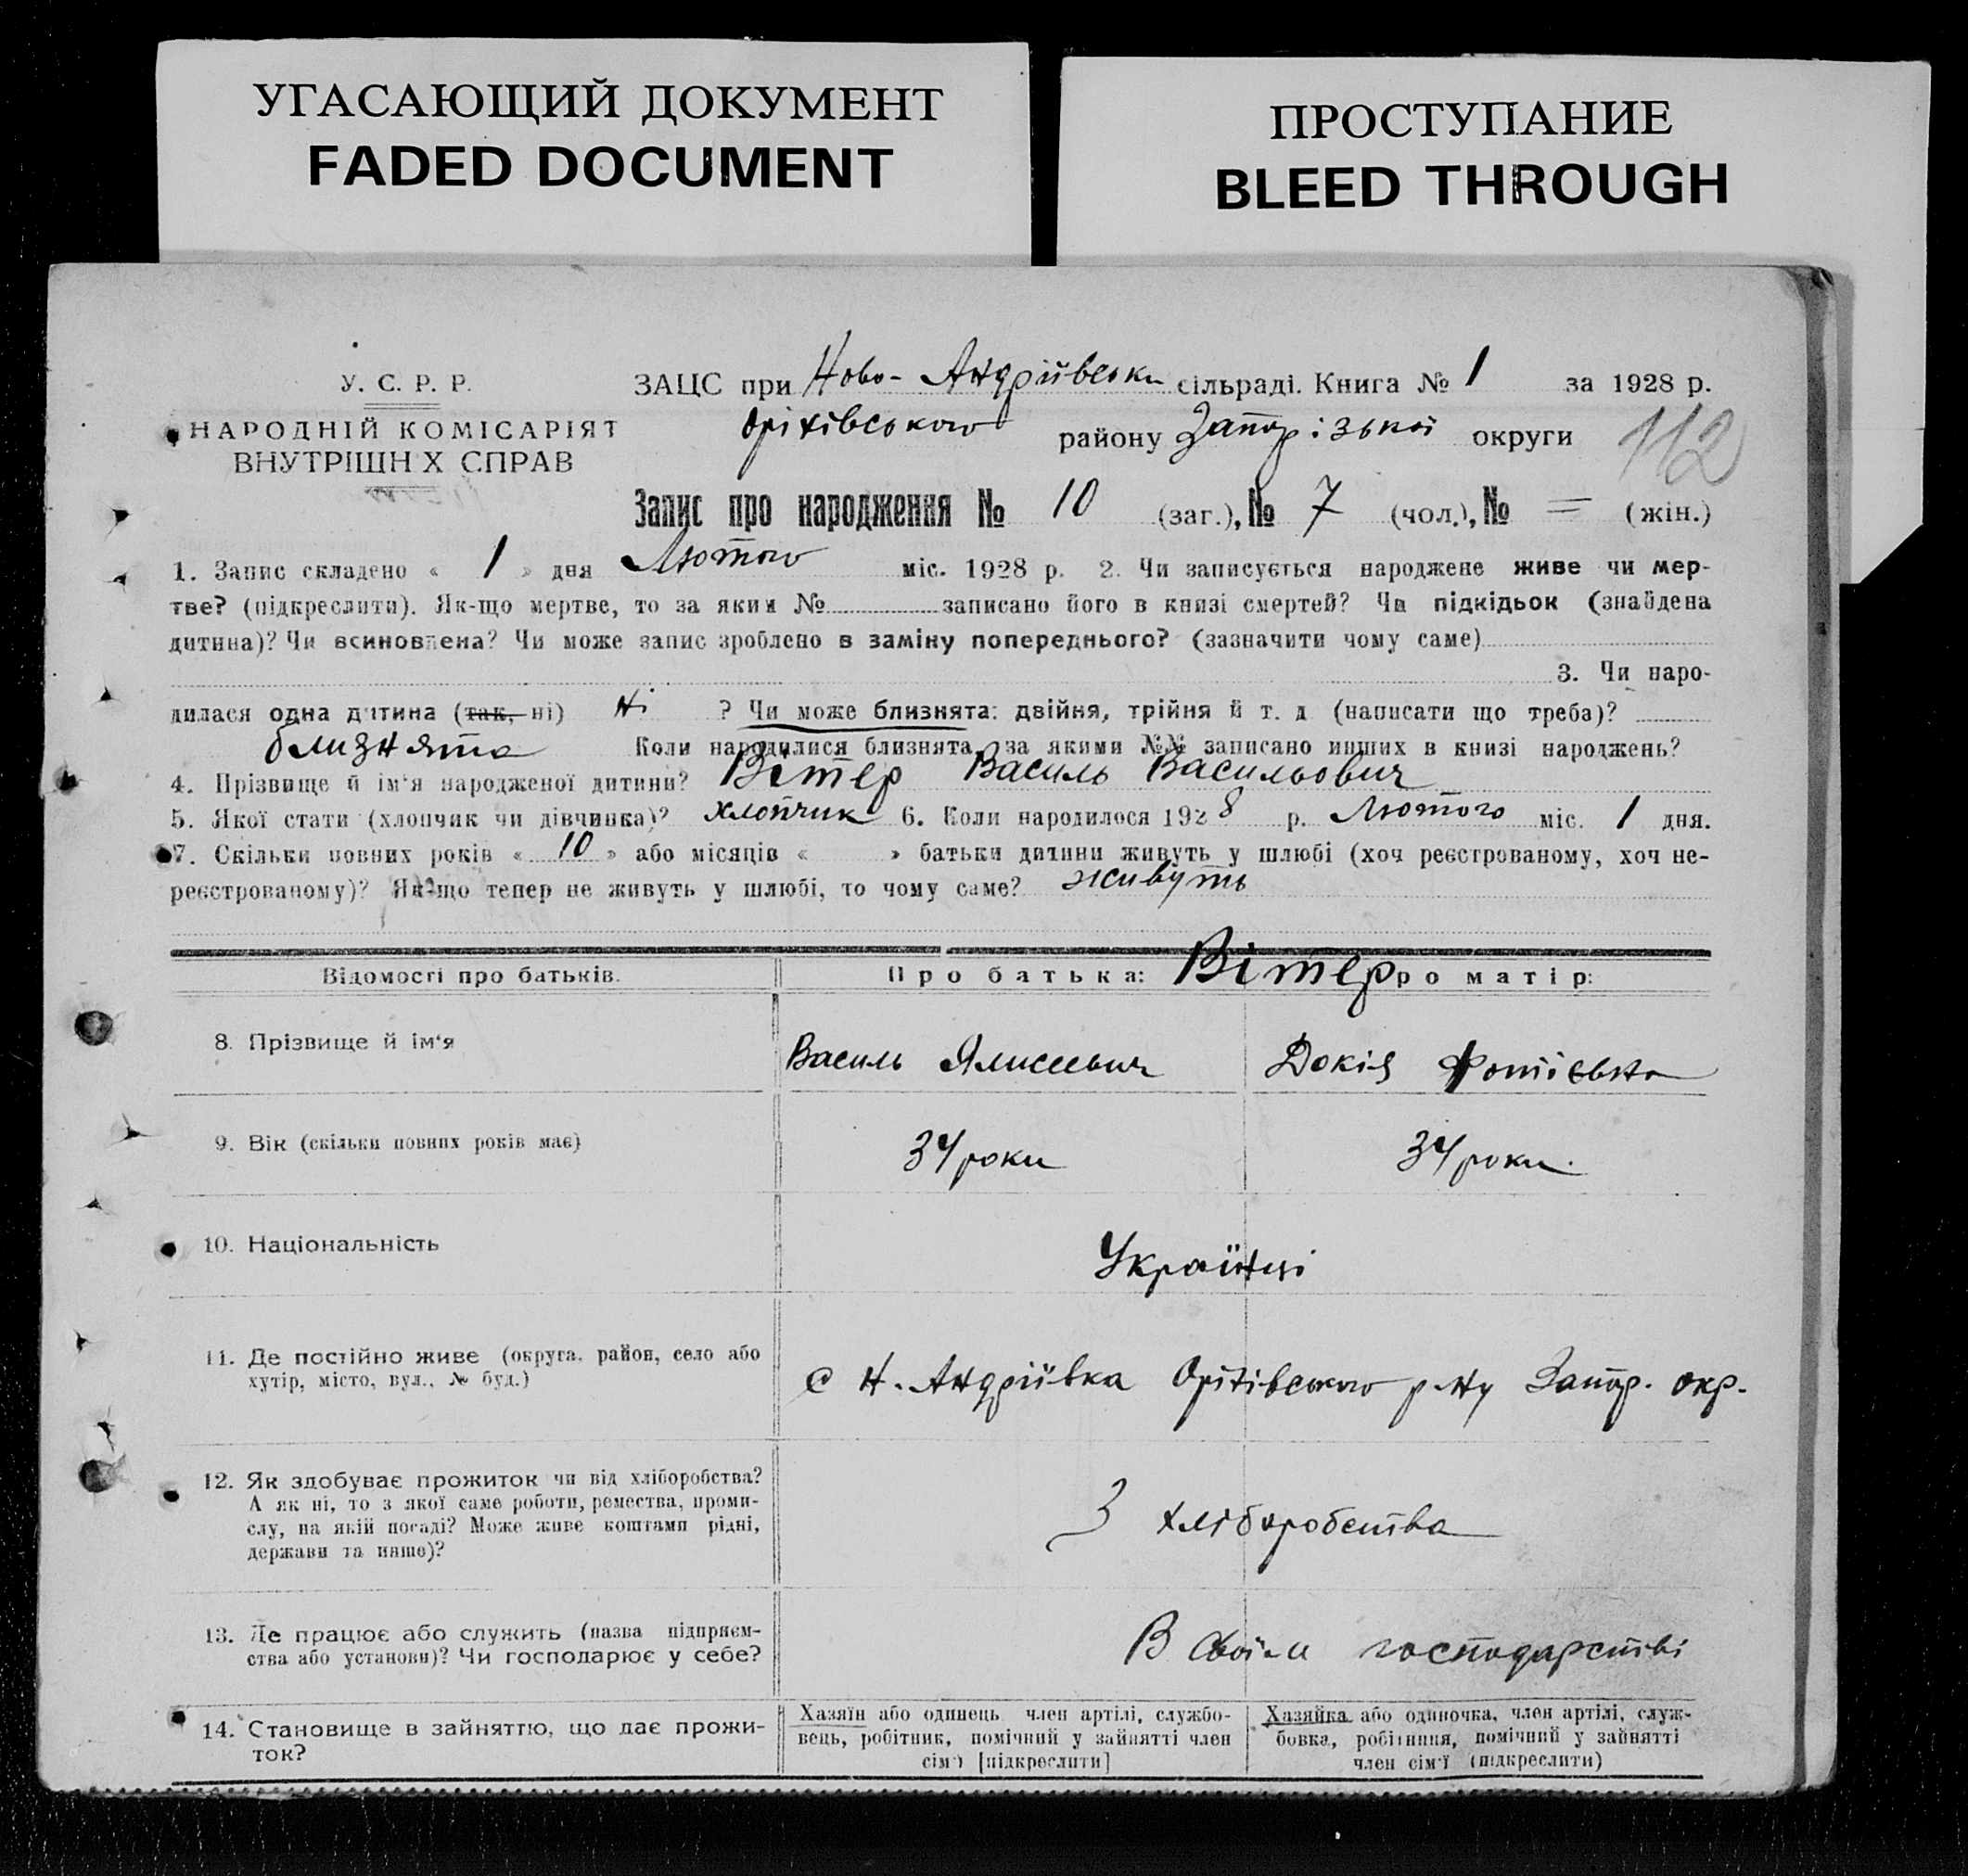 УГАСАЮЩИЙ ДОКУМЕНТ
FADED DOCUMENT
ПРОСТУПАНИЕ
BLEED THROUGH
У. С. Р. Р.
НАРОДНІЙ КОМІСАРІЯТ
ВНУТРІШН Х СПРАВ
ЗАЦС при Ново-Андріївськи сільраді. Книга № 1 за 1928 р.
Оріхівського району Запорізької округи 112
Запис про народження № 10 (заг.), № 7 (чол.), № = (жін.)
1. Запис складено « 1 » дня Лютого міс. 1928 р. 2. Чи записується народжене живе чи мер-
тве? (підкреслити). Як-що мертве, то за яким № записано його в книзі смертей? Чи підкідьок (знайдена
дитина)? Чи всиновлена? Чи може запис зроблено в заміну попереднього? (зазначити чому саме)
3. Чи наро-
дилася одна дитина (так, ні) Ні ? Чи може близнята: двійня, трійня й т. д (написати що треба)?
близнята Коли народилися близнята, за якими №№ записано инших в книзі народжень?
4. Прізвище й ім'я народженої дитини? Вітер Василь Васильович
5. Якої стати (хлопчик чи дівчинка)? хлопчик 6. Коли народилося 1928 р. Лютого міс. 1 дня.
7. Скільки повних років « 10 » або місяців « » батьки дитини живуть у шлюбі (хоч реєстрованому, хоч не-
реєстрованому)? Як-що тепер не живуть у шлюбі, то чому саме? живуть
Відомості про батьків. Про батька: Вітер ро матір:
8. Прізвище й ім'я Василь Ялисеевич Докія Фотієвна
9. Вік (скільки повних років має) 34 роки 34 роки.
10. Національність Українці
11. Де постійно живе (округа, район, село або
хутір, місто, вул., № буд.)
с Н. Андріївка Оріхівського р-ну Запор. окр.
12. Як здобуває прожиток чи від хліборобства?
А як ні, то з якої саме роботи, ремества, проми-
слу, на якій посаді? Може живе коштами рідні,
держави та инше)?
З хліборобства
13. Де працює або служить (назва підприєм-
ства або установи)? Чи господарює у себе?
В своїм господарстві
14. Становище в зайняттю, що дає прожи-
ток?
Хазяїн або одинець член артілі, службо-
вець, робітник, помічний у зайнятті член
сім'ї [підкреслити]
Хазяйка або одиночка, член артілі, служ-
бовка, робітниця, помічний у зайнятті
член сім'ї (підкреслити)